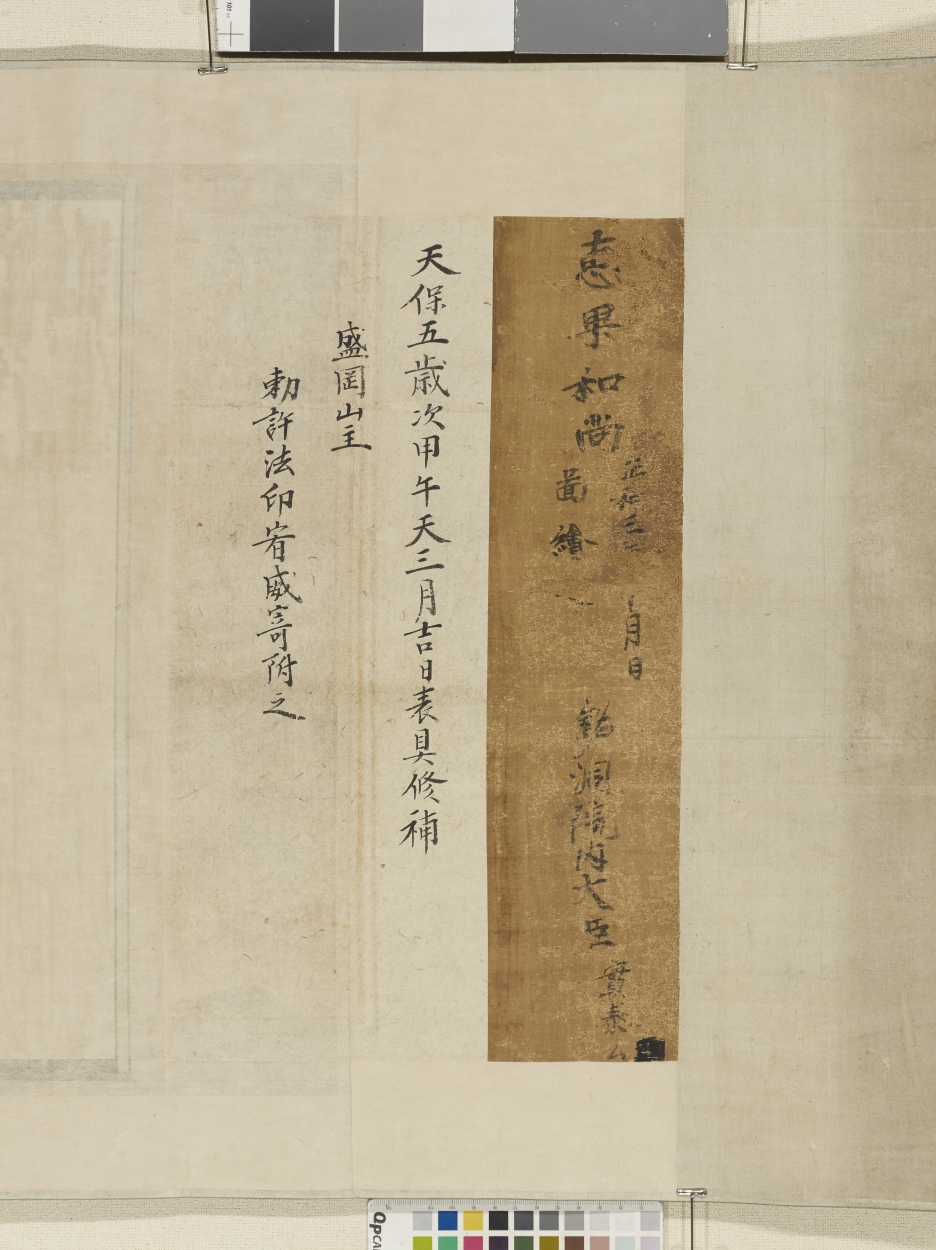 恵果和尚
圖繪
正和三 月日
洞院内大臣
實泰公
天保五歳次甲午天三月吉日表具修補
盛岡山主
勅許法印宥威寄附之